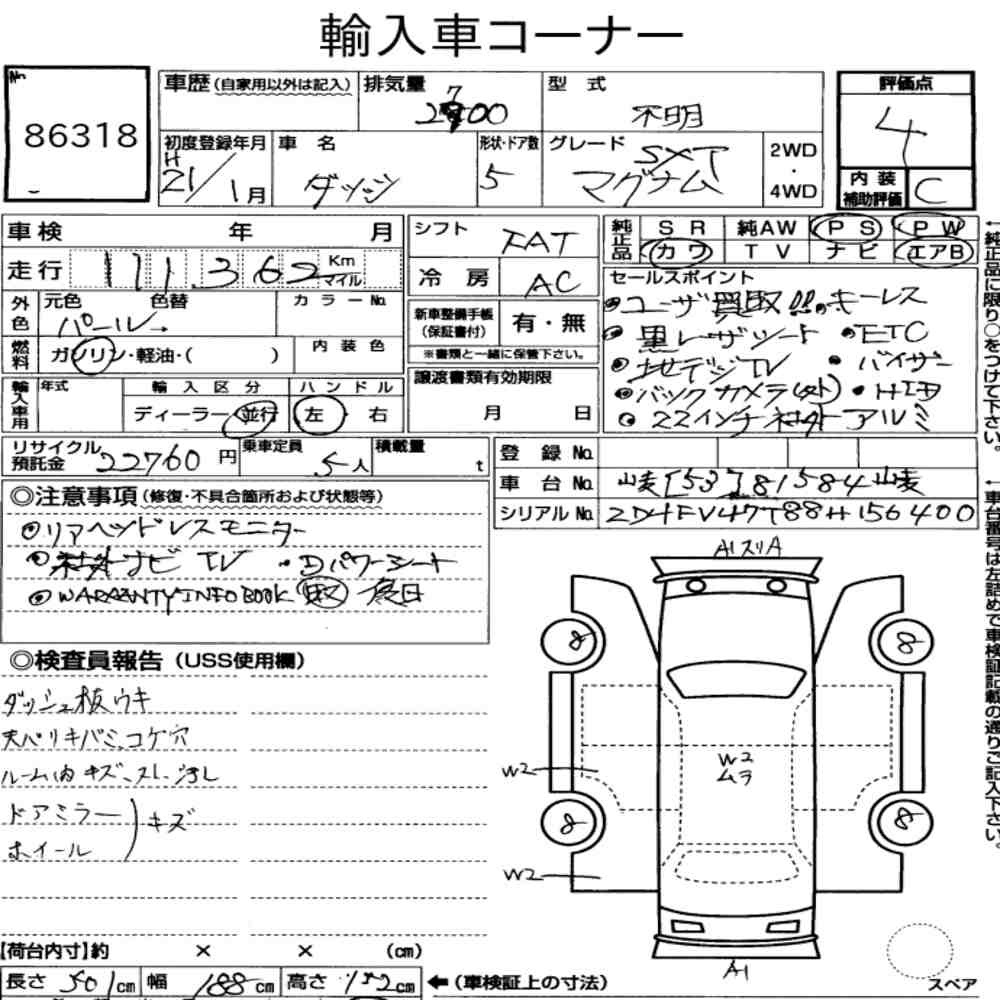 輸入車コーナー
No
86318
車歴(自家用以外は記入)
排気量
2700
型 式
不明
評価点
4
内装補助評価
C
初度登録年月
H
21/1月
車 名
ダッジ
形状・ドア数
5
グレード
SXT
マグナム
2WD
・
4WD
車検 年 月
走行 111,362 Km マイル
外色 元色 色替 カラーNo.
パール→
燃料 ガソリン・軽油・( ) 内装色
輸入車用 年式 輸入区分 ハンドル
ディーラー 並行 左 右
シフト FAT
冷房 AC
新車整備手帳(保証書付) 有・無
※書類と一緒に保管下さい。
譲渡書類有効期限
月 日
純正品 SR 純AW PS PW
カワ TV ナビ エアB
セールスポイント
●ユーザ買取品 ●キーレス
●黒レーザシート ●ETC
●地デジTV ●バイザー
●バックカメラ(外) ●HID
●22インチ社外アルミ
←純正品に限り○をつけて下さい。
リサイクル預託金 22760円
乗車定員 5人
積載量 t
登録No.
車台No. 山麦[53]81584山麦
シリアルNo. 2D4FV47T88H156400
←車台番号は左詰めで車検証記載の通りご記入下さい。
◎注意事項(修復・不具合箇所および状態等)
●リアヘッドレスモニター
●社外ナビ TV ・Dパワーシート
●WARRANTY INFO BOOK 取 後日
◎検査員報告(USS使用欄)
ダッシュ板ウキ
天バリキバミ、コゲ穴
ルーム内キズ、スレ、汚し
ドアミラー
ホイール
)キズ
A1スリA
8
8
W2
W2
ムラ
8
8
W2
A1
スペア
【荷台内寸】約 × × (cm)
長さ 501cm 幅 188cm 高さ 152cm ←(車検証上の寸法)